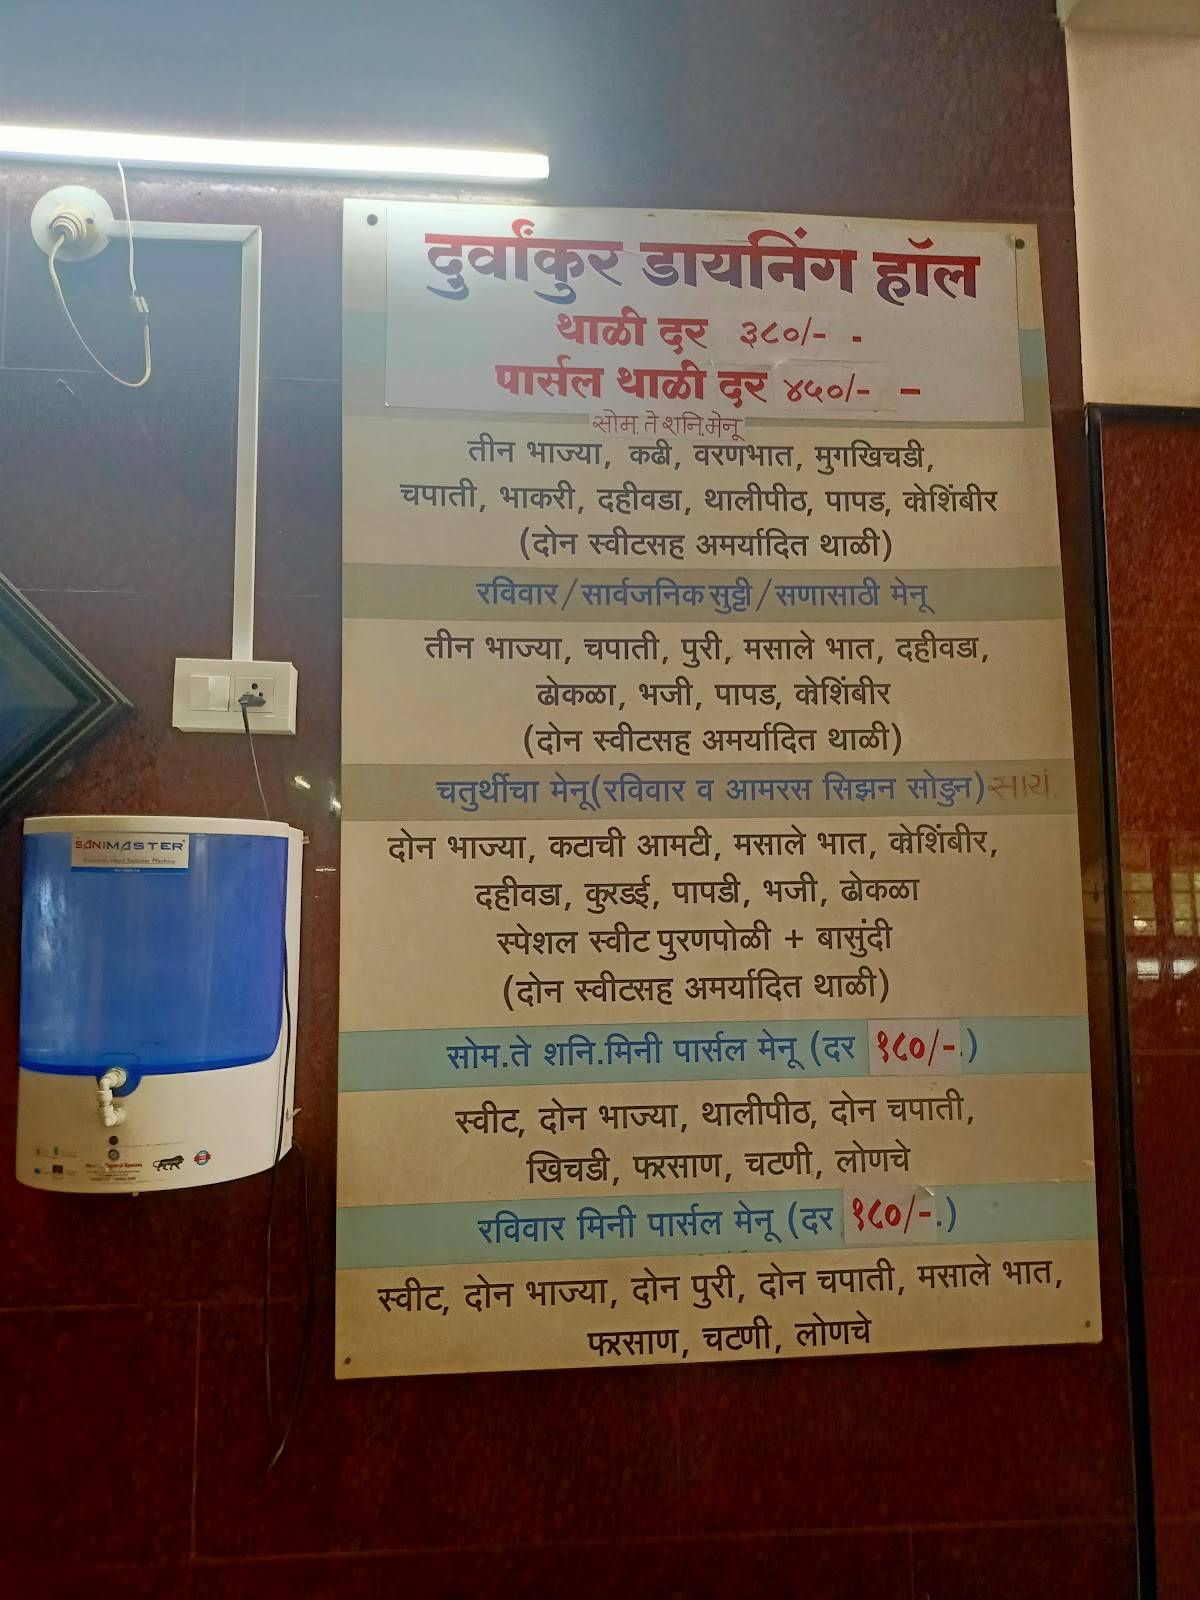 दुर्वांकुर डायनिंग हॉल
थाळी दर ३८०/- -
पार्सल थाळी दर ४५०/- -
सोम. ते शनि.मेनू
तीन भाज्या, कढी, वरणभात, मुगखिचडी,
चपाती, भाकरी, दहीवडा, थालीपीठ, पापड, कोशिंबीर
(दोन स्वीटसह अमर्यादित थाळी)
रविवार/सार्वजनिक सुट्टी/सणासाठी मेनू
तीन भाज्या, चपाती, पुरी, मसाले भात, दहीवडा,
ढोकळा, भजी, पापड, कोशिंबीर
(दोन स्वीटसह अमर्यादित थाळी)
चतुर्थीचा मेनू(रविवार व आमरस सिझन सोडुन) सायं.
दोन भाज्या, कटाची आमटी, मसाले भात, कोशिंबीर,
दहीवडा, कुरडई, पापडी, भजी, ढोकळा
स्पेशल स्वीट पुरणपोळी + बासुंदी
(दोन स्वीटसह अमर्यादित थाळी)
सोम.ते शनि.मिनी पार्सल मेनू (दर १८०/-.)
स्वीट, दोन भाज्या, थालीपीठ, दोन चपाती,
खिचडी, फरसाण, चटणी, लोणचे
रविवार मिनी पार्सल मेनू (दर १८०/-.)
स्वीट, दोन भाज्या, दोन पुरी, दोन चपाती, मसाले भात,
फरसाण, चटणी, लोणचे
SANIMASTER
Automatic Hand Sanitizer Machine